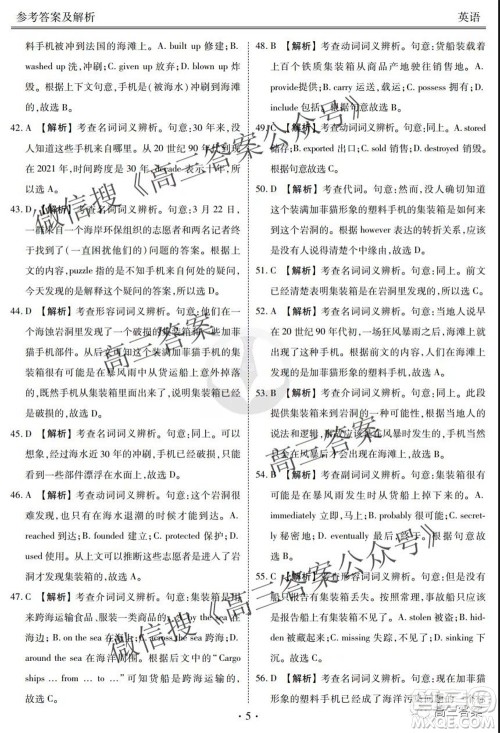 参考答案及解析
英语
料手机被冲到法国的海滩上。A. built up 修建；B.
washed up 洗,冲刷；C. given up 放弃；D. blown up 炸
毁。根据上下文章节,手机是(被海水)冲刷到海滩的,
故选 B。
42. A 【解析】考查名词词义辨析。句意:30 年来,没
人知道这些手机来自哪里。从 20 世纪 80 年代到现
在的 2021 年,时间跨度是 30 年,decade 表示十年,所
以选 A。
43. D 【解析】考查名词词义辨析。句意:3 月 22 日,
一群来自一个海岸环保组织的志愿者和两名记者
找到了(一直困扰他们的)问题的答案。根据上下
文的内容,puzzle 指的是不知手机来自哪里的问题,
今天发现了,所以选择 D。
44. D 【解析】考查形容词词义辨析。句意:他们在一
个海蚀岩洞里发现了一个集装箱的残骸和一些加
菲猫手机部件。上文提到,装满加菲猫塑料手机的
集装箱很有可能是在风暴中从货船上意外掉下来
的,所以选 D。
45. D 【解析】考查名词词义辨析。句意:
想象,经过海水浸泡,集装箱
一些部件漂浮在水面,因此选 D。
46. A 【解析】考查动词词义辨析。句意:这个岩洞很
难发现,只有在海水退潮的时候才能到达。A.
reached 到达；B. founded 建立；C. protected 保护；D.
used 使用。根据上下文判断这些志愿者是进入了岩
洞才发现集装箱的,故选 A。
47. C 【解析】考查介词短语辨析。句意:集装箱是用
来跨海运输食品、服装一类商品的。A. by the sea 在
海边；B. on the sea 在海上；C. across the sea 跨海；D.
around the sea 在海洋周围。根据下文中的“Cargo
ships … from … to …”可知,是跨海运输的,所以
选 C。
48. B 【解析】考查动词词义辨析。句意:货船装着成
上百个铁质集装箱从一个地方运到另一个地方。A.
provide提供；B. carry 运送,载运；C. possess 拥有；D.
include 包括。根据句意故选 B。
49. B 【解析】考查动词词义辨析。句意:同上。A. stored
储存；B. exported 出口；C. sold 销售；D. destroyed 销毁。
根据句意故选 B。
50. D 【解析】考查代词。句意:然而,没人确切知道
这个装满加菲猫形象的塑料手机的集装箱发生了
什么事情。根据 however 表达的转折关系,所以应
该是没有人知道清楚这个集装箱的缘由,故选 D。
51. C 【解析】考查名词词义辨析。句意:同上。前文
已经提到了集装箱,故选 C。
52. A 【解析】考查动词词义辨析。句意:上文说
早在 20 世纪 90 年代初,一场风暴之后,海滩上就出
现了手机,所以很有可能集装箱是在风暴的时候
掉下来的,故选 A。
53. B 【解析】考查介词词义辨析。
提供集装箱来到岩洞的
集装箱
故选 B。
54. B 【解析】考查副词词义辨析。句意:集装箱很有
可能是在风暴的时候意外从船上掉下来的。A.
immediately 立即,马上；B. accidentally 意外；C. secret-
ly 秘密地；D. eventually 终于。根据句意故选 B。
55. C 【解析】考查形容词词义辨析。句意:没有船只
报告有集装箱丢失。A. stolen 被偷的；B. hid-
den 被隐藏的；C. missing 丢失,不见了；D. sinking 下
沉。根据句意故选 C。
56. D 【解析】考查名词词义辨析。句意:现在,加菲猫
形象的塑料手机已经成了海洋污染问题的一
· 5 ·
微信搜《高三答案公众号》
高三答案
高三答案
微信搜《高三答案公众号》
高三答案